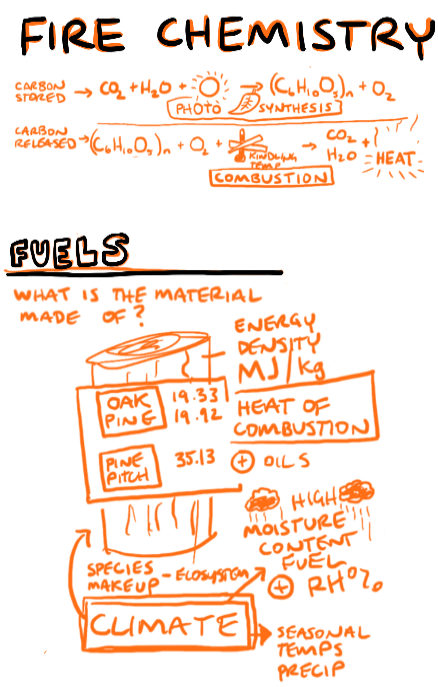 FIRE CHEMISTRY
CARBON STORED → CO₂ + H₂O + → (C₆H₁₀O₅)n + O₂
PHOTO SYNTHESIS
CARBON RELEASED → (C₆H₁₀O₅)n + O₂ + KINDLING TEMP → CO₂ H₂O + HEAT
COMBUSTION
FUELS
WHAT IS THE MATERIAL
MADE OF?
ENERGY
DENSITY
MJ/kg
OAK 19.33
PINE 19.92
HEAT OF
COMBUSTION
PINE
PITCH
35.13
+ OILS
HIGH
MOISTURE
CONTENT
FUEL
+ RH%
SPECIES
MAKEUP - ECOSYSTEM
CLIMATE
SEASONAL
TEMPS
PRECIP